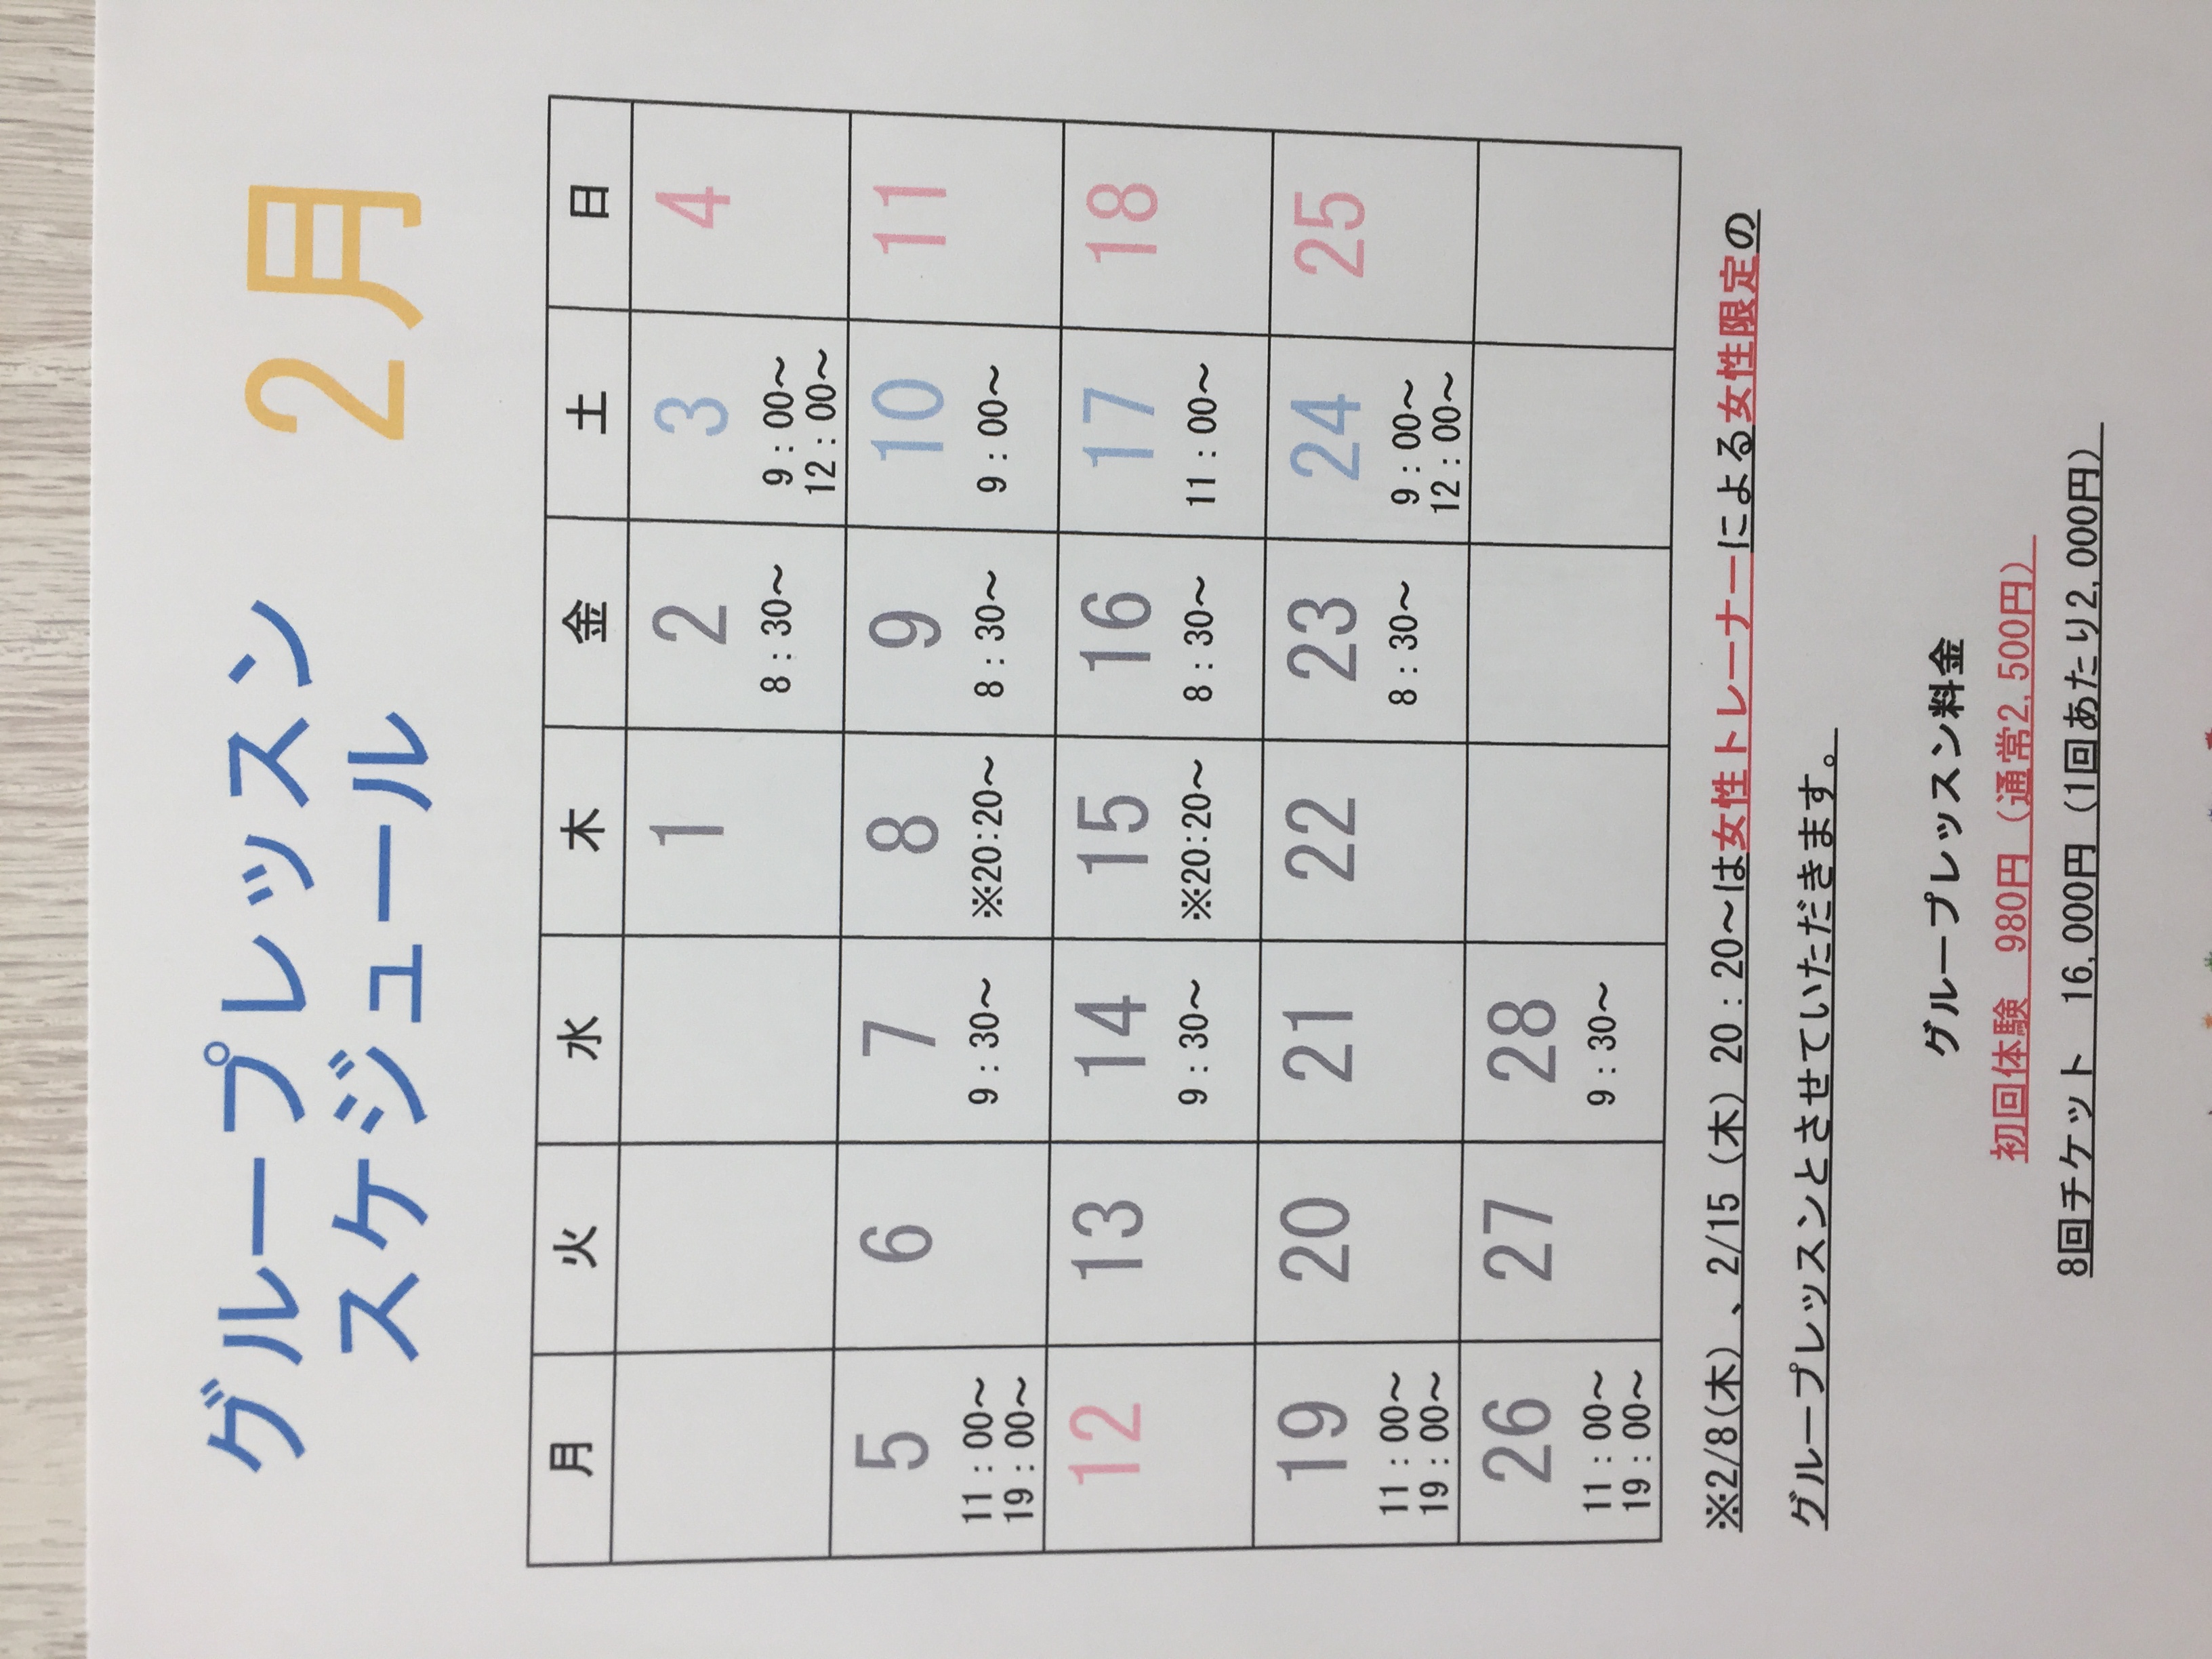 グループレッスン 2月
スケジュール
月 火 水 木 金 土 日
1 2 3 4
8:30～ 9:00～
12:00～
5 6 7 8 9 10 11
11:00～ 9:30～ ※20:20～ 8:30～ 9:00～
19:00～
12 13 14 15 16 17 18
9:30～ ※20:20～ 8:30～ 11:00～
19 20 21 22 23 24 25
11:00～ 8:30～ 9:00～
19:00～ 12:00～
26 27 28
11:00～ 9:30～
19:00～
※2/8(木)、2/15（木）20：20～は女性トレーナーによる女性限定の
グループレッスンとさせていただきます。
グループレッスン料金
初回体験 980円（通常2,500円）
8回チケット 16,000円（1回あたり2,000円）